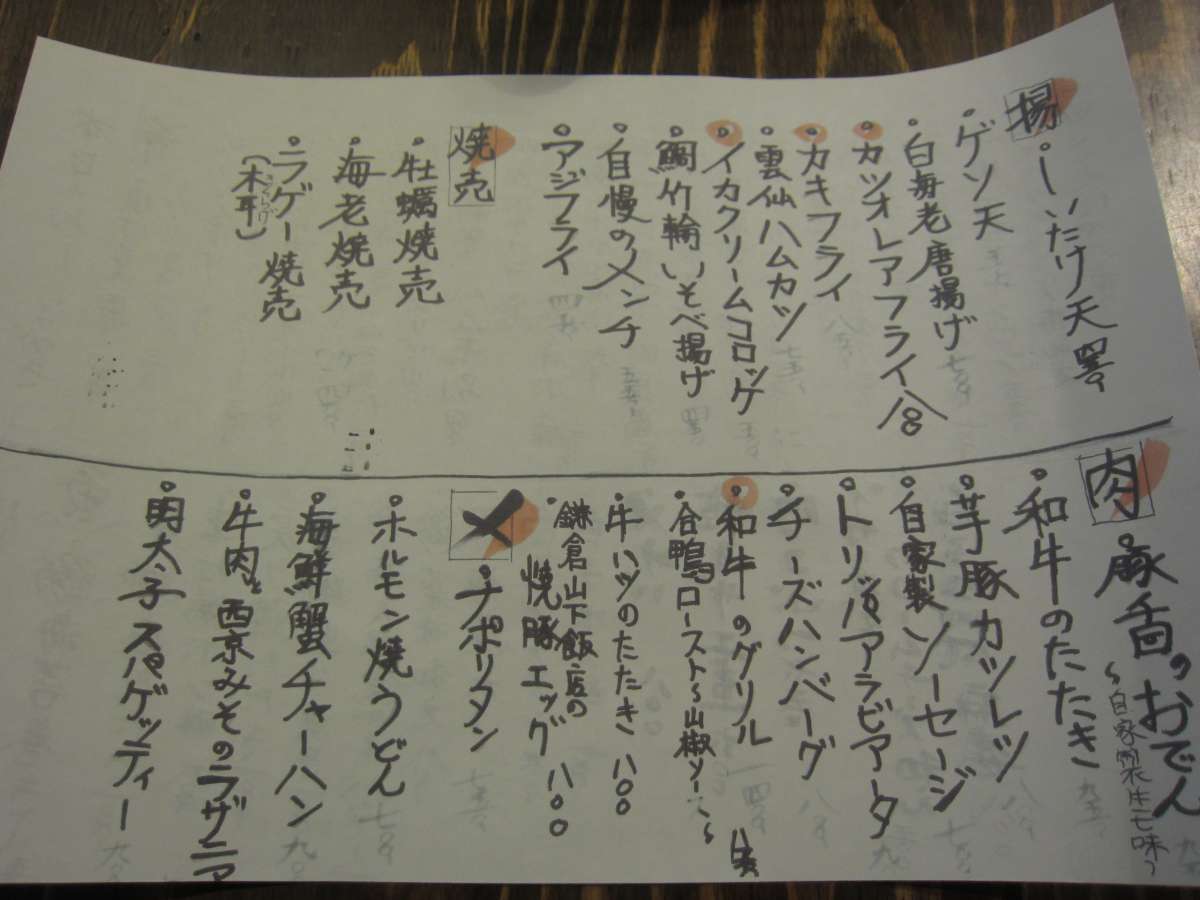 揚
・しいたけ天
・ゲソ天
・白海老唐揚げ
・カツオレアフライ 八
・カキフライ
・雲仙ハムカツ
・イカクリームコロッケ
・鯛竹輪いそべ揚げ
・自慢のメンチ
・アジフライ
焼売
・牡蠣焼売
・海老焼売
・ラゲー焼売
(木耳)
きくらげ
肉
・豚舌のおでん
～自家製生七味～
・和牛のたたき
・芋豚カツレツ
・自家製ソーセージ
・トリッパアラビアータ
・チーズハンバーグ
・和牛のグリル
・合鴨ロースト～山椒ソース～
・牛ハツのたたき 八〇〇
・鎌倉山下飯店の
焼豚エッグ 八〇〇
〆
・ナポリタン
・ホルモン焼うどん
・海鮮蟹チャーハン
・牛肉と西京みそのラザニア
・明太子スパゲッティー